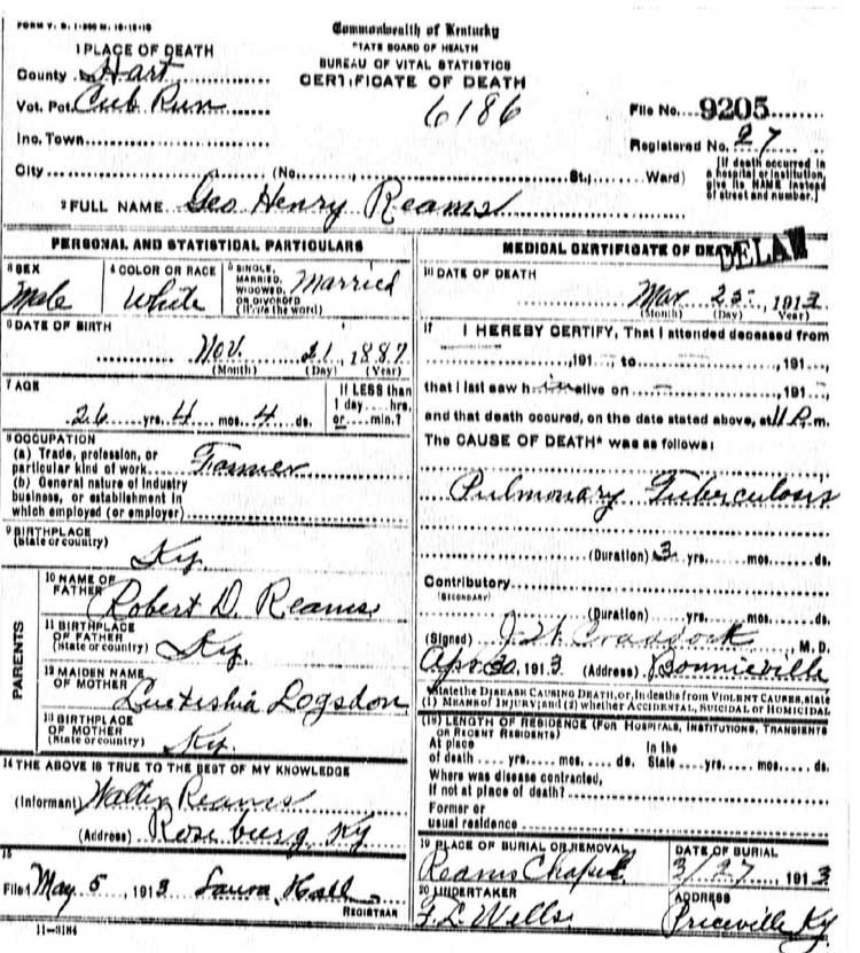 FORM V. S. 1-
Commonwealth of Kentucky
STATE BOARD OF HEALTH
BUREAU OF VITAL STATISTICS
CERTIFICATE OF DEATH
1 PLACE OF DEATH
County Hart
Vot. Pct. Cub Run
6186
File No. 9205
Inc. Town
Registered No. 27
City (No. St.; Ward)
[If death occurred in a hospital or institution, give its NAME instead of street and number.]
2 FULL NAME Geo Henry Reams
PERSONAL AND STATISTICAL PARTICULARS
3 SEX Male
4 COLOR OR RACE White
5 SINGLE, MARRIED, WIDOWED, OR DIVORCED (Write the word) Married
6 DATE OF BIRTH
Nov. 21, 1887
(Month) (Day) (Year)
7 AGE
26 yrs. 4 mos. 4 ds.
If LESS than 1 day hrs. or min.?
8 OCCUPATION
(a) Trade, profession, or
particular kind of work Farmer
(b) General nature of industry
business, or establishment in
which employed (or employer)
9 BIRTHPLACE
(State or country) Ky.
PARENTS
10 NAME OF FATHER Robert D. Reams
11 BIRTHPLACE OF FATHER (State or country) Ky.
12 MAIDEN NAME OF MOTHER Luetishia Logsdon
13 BIRTHPLACE OF MOTHER (State or country) Ky.
14 THE ABOVE IS TRUE TO THE BEST OF MY KNOWLEDGE
(Informant) Walter Reams
(Address) Roseburg Ky
15
Filed May 5, 1913 Laura Hall
REGISTRAR
11-3184
MEDICAL CERTIFICATE OF DEA
DELA
16 DATE OF DEATH
Mar 25, 1913
(Month) (Day) (Year)
17 I HEREBY CERTIFY, That I attended deceased from
, 191 to , 191
that I last saw him alive on , 191
and that death occured, on the date stated above, at 11 P.m.
The CAUSE OF DEATH* was as follows:
Pulmonary Tuberculosis
(Duration) 3 yrs. mos. ds.
Contributory
(SECONDARY)
(Duration) yrs. mos. ds.
(Signed) J.W. Craddock, M. D.
Apr. 30, 1913 (Address) Bonnieville
*State the DISEASE CAUSING DEATH, or, in deaths from VIOLENT CAUSES, state
(1) MEANS of INJURY; and (2) whether ACCIDENTAL, SUICIDAL or HOMICIDAL
(18) LENGTH OF RESIDENCE (FOR HOSPITALS, INSTITUTIONS, TRANSIENTS
OR RECENT RESIDENTS)
At place of death yrs. mos. ds. In the State yrs. mos. ds.
Where was disease contracted,
if not at place of death?
Former or
usual residence
19 PLACE OF BURIAL OR REMOVAL
Reams Chapel
DATE OF BURIAL
3/27 1913
20 UNDERTAKER
F.L. Wells
ADDRESS
Priceville Ky